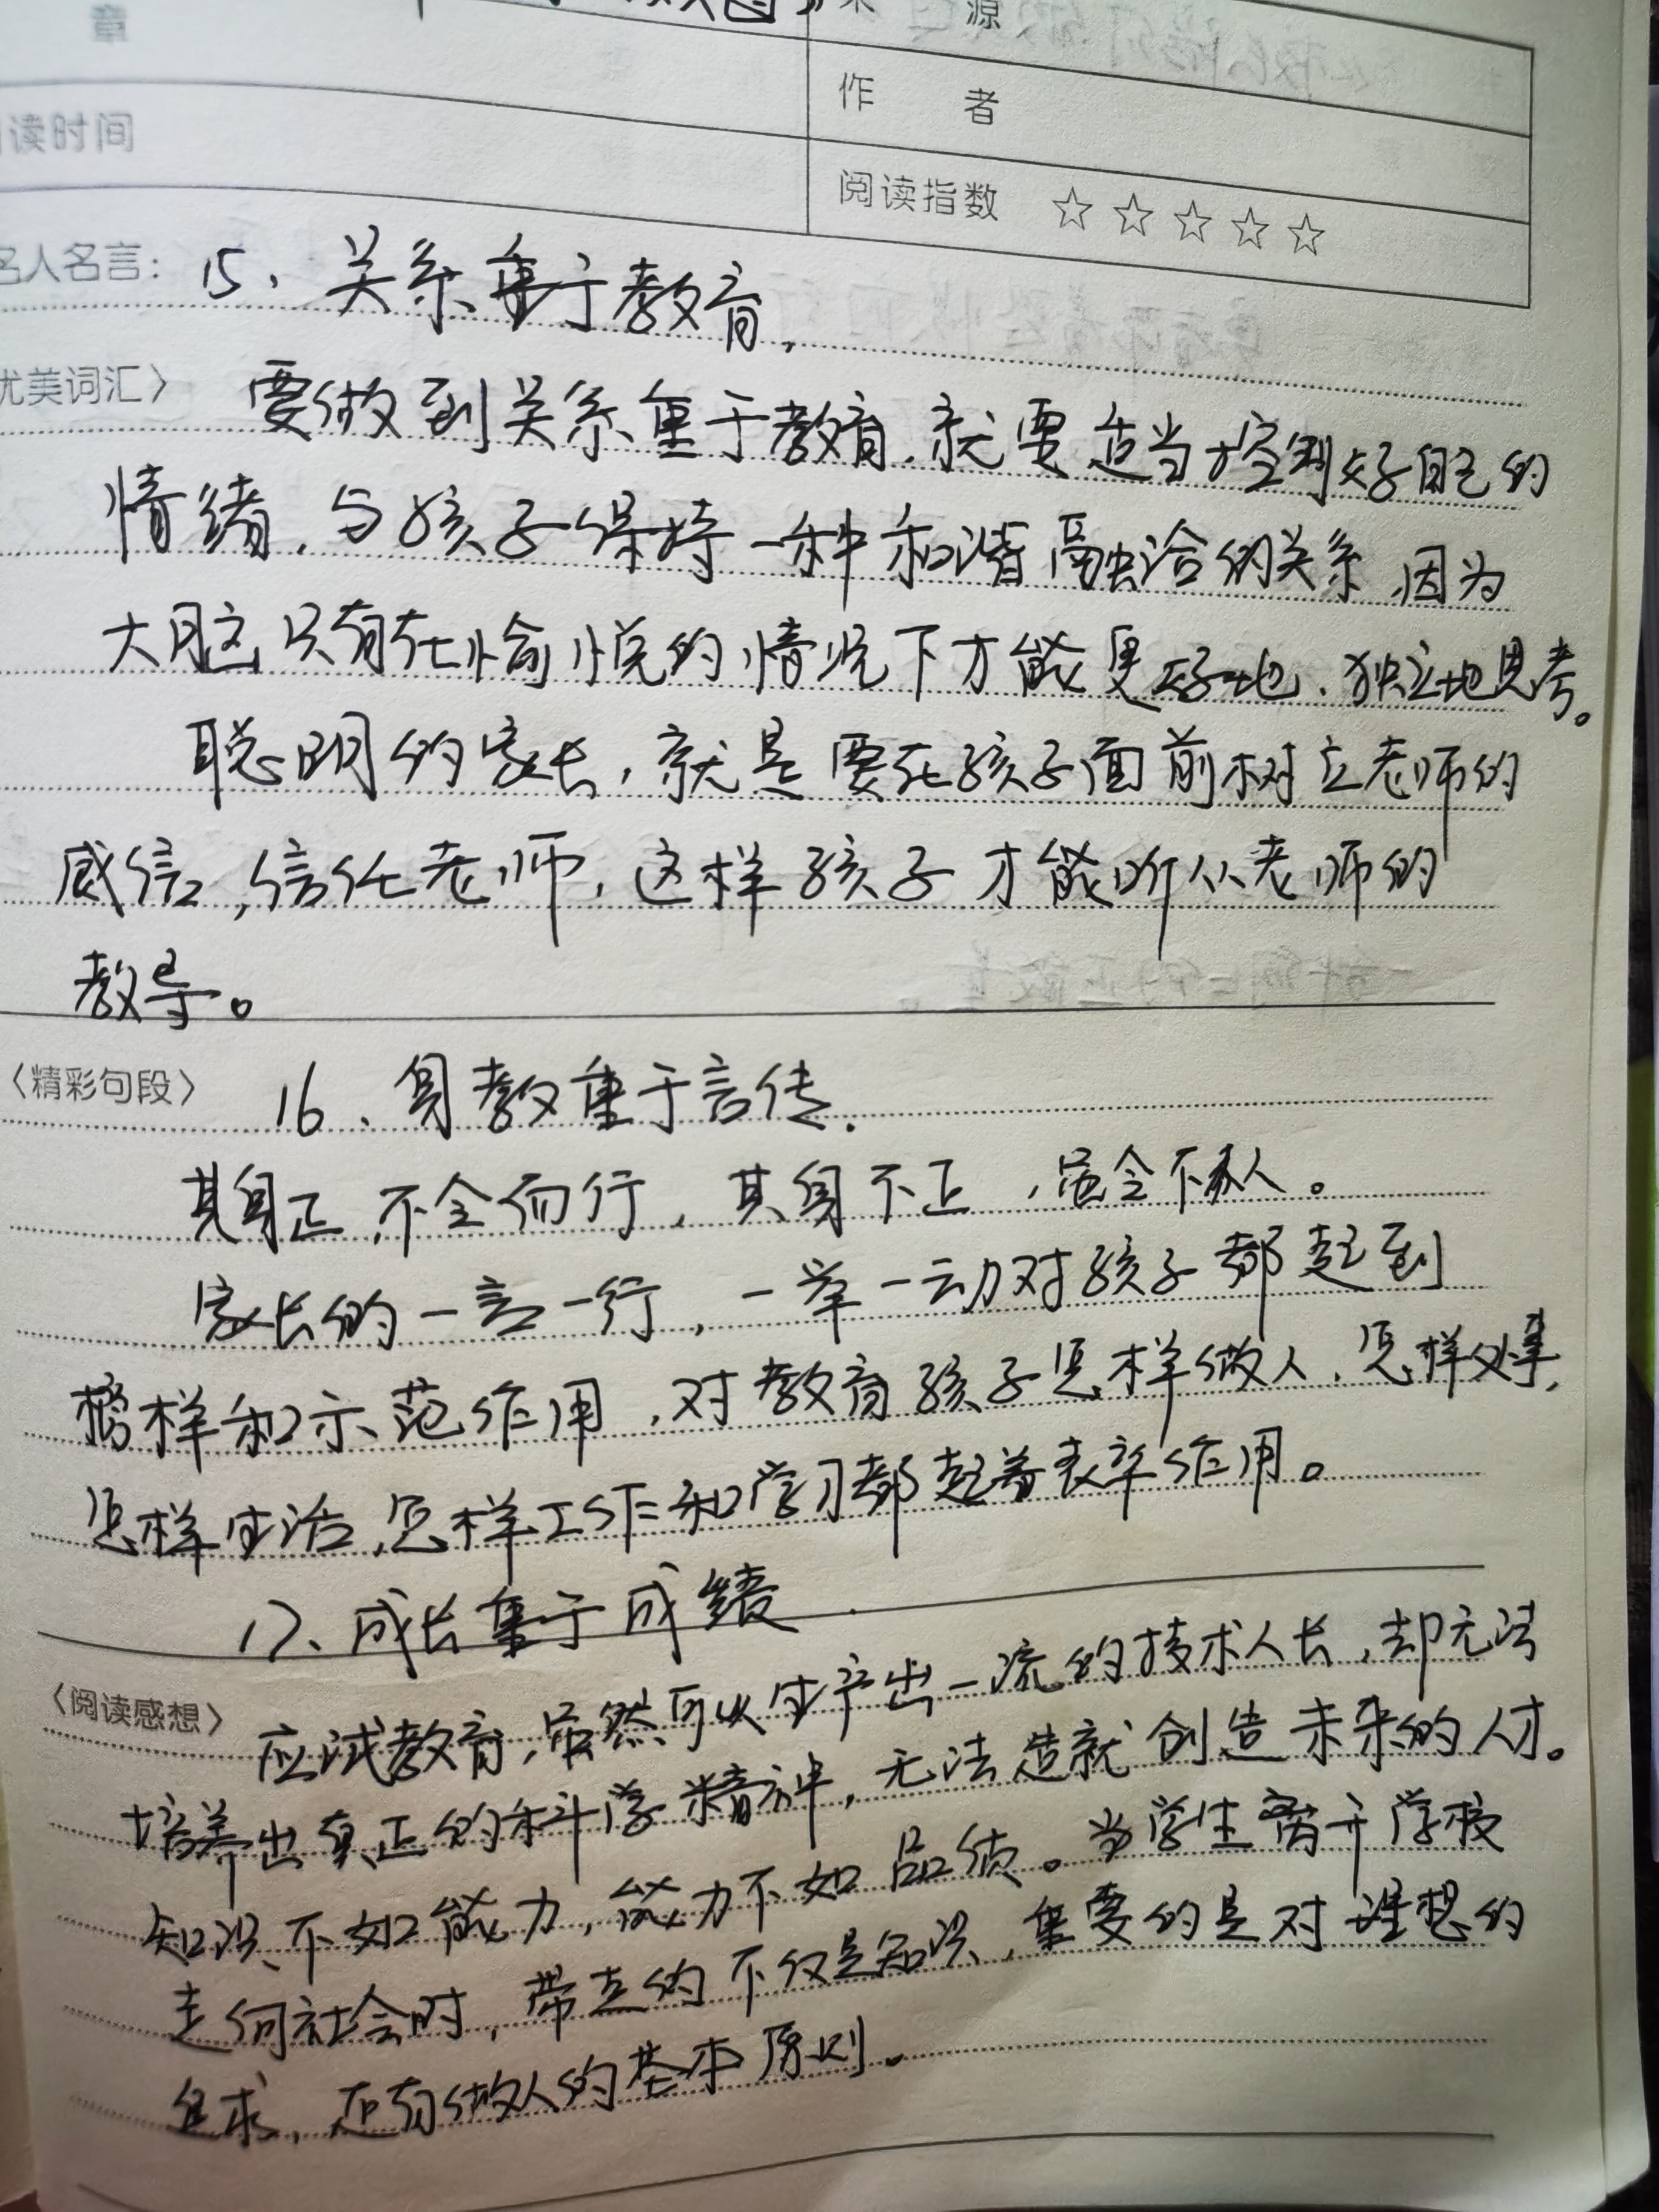 章
来 源
作 者
读时间
阅读指数 ☆ ☆ ☆ ☆ ☆
名人名言： 15、关系重于教育.
优美词汇〉 要做到关系重于教育，就要适当控制好自己的
情绪，与孩子保持一种和谐融洽的关系，因为
大脑只有在愉悦的情况下才能更好地、独立地思考。
聪明的家长，就是要在孩子面前树立老师的
威信，信任老师，这样孩子才能听从老师的
教导。
〈精彩句段〉 16、身教重于言传.
其身正，不令而行，其身不正，虽令不从。
家长的一言一行，一举一动对孩子都起到
榜样和示范作用，对教育孩子怎样做人，怎样处事，
怎样生活，怎样工作和学习都起着表率作用。
17、成长重于成绩.
〈阅读感想〉 应试教育，虽然可以生产出一流的技术人长，却无法
培养出真正的科学精神，无法造就创造未来的人才。
知识不如能力，能力不如品质。当学生离开学校
走向社会时，带走的不仅是知识，重要的是对理想的
追求，还有做人的基本原则.